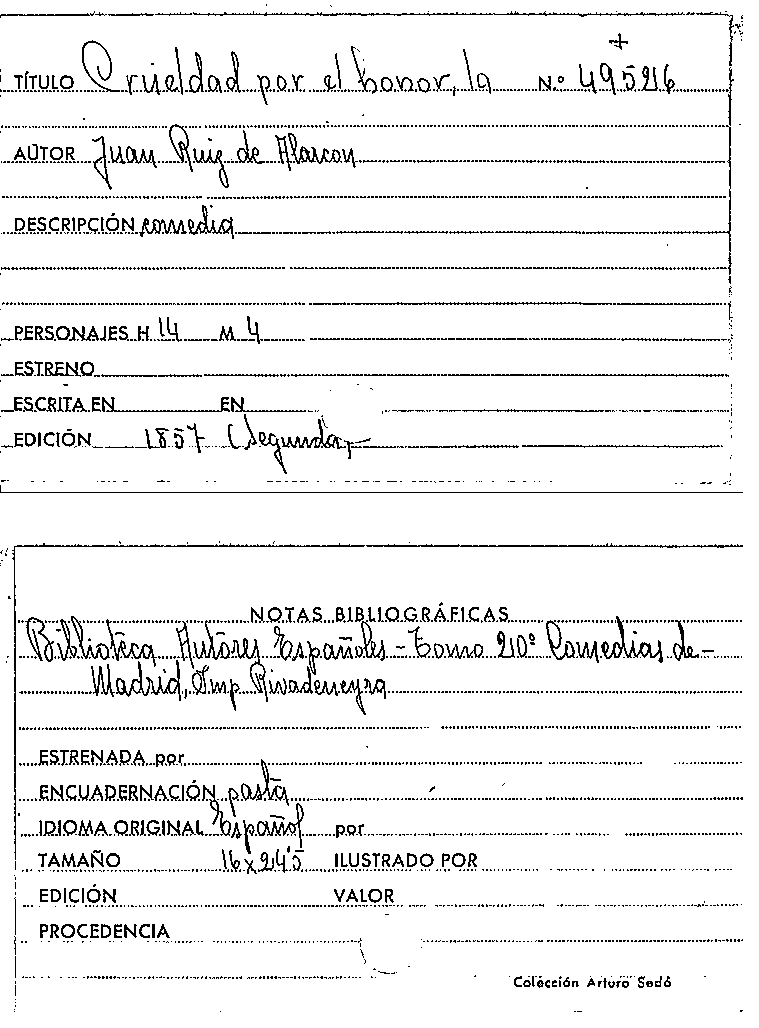 +
TÍTULO Crueldad por el honor, la N.º 495216
AUTOR Juan Ruiz de Alarcon
DESCRIPCIÓN comedia
PERSONAJES H 14 M 4
ESTRENO
ESCRITA EN EN
EDICIÓN 1857 (Segunda,-
NOTAS BIBLIOGRÁFICAS
Biblioteca Autores Españoles - Tomo 20º Comedias de -
Madrid, Imp Rivadeneyra
ESTRENADA por
ENCUADERNACIÓN pasta
IDIOMA ORIGINAL Español por
TAMAÑO 16 x 24'5 ILUSTRADO POR
EDICIÓN VALOR
PROCEDENCIA
Colección Arturo Sedó